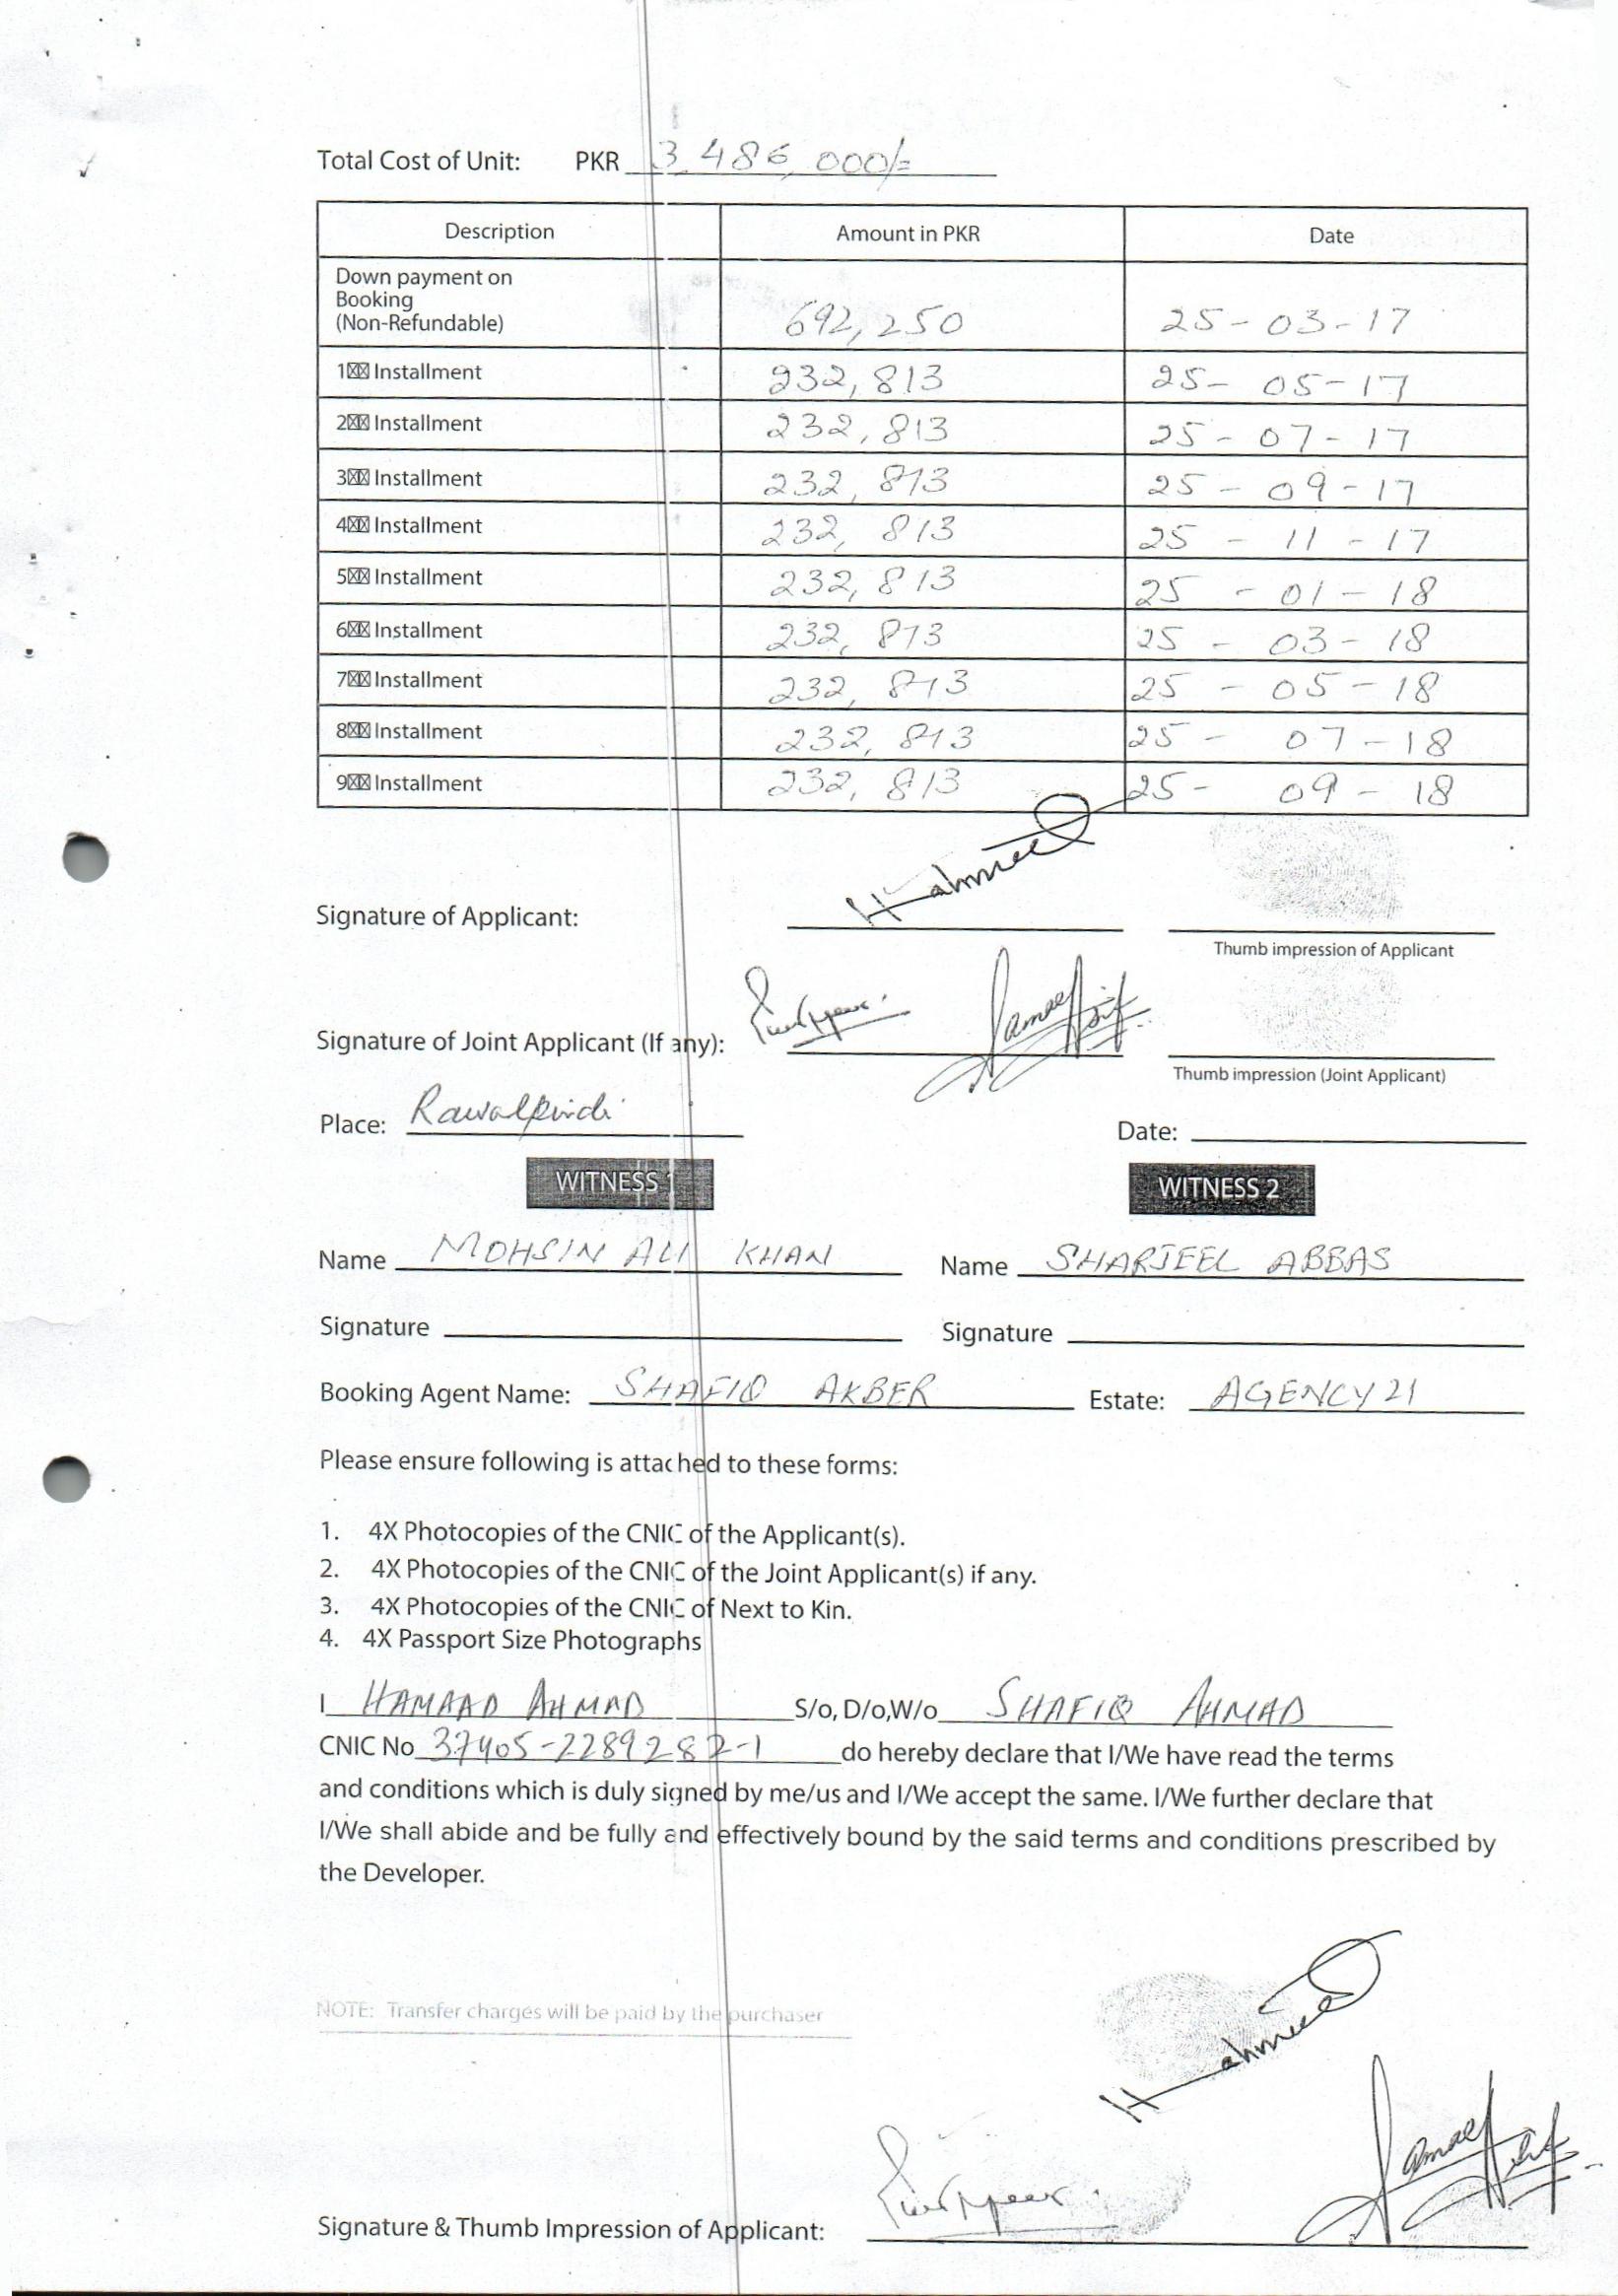 Total Cost of Unit: PKR 3,486,000/=
Description Amount in PKR Date
Down payment on
Booking
(Non-Refundable) 692,250 25-03-17
1 Installment 232,813 25-05-17
2 Installment 232,813 25-07-17
3 Installment 232,813 25-09-17
4 Installment 232,813 25-11-17
5 Installment 232,813 25-01-18
6 Installment 232,813 25-03-18
7 Installment 232,813 25-05-18
8 Installment 232,813 25-07-18
9 Installment 232,813 25-09-18
Signature of Applicant:
Thumb impression of Applicant
Signature of Joint Applicant (If any):
Thumb impression (Joint Applicant)
Place: Rawalpindi Date:
WITNESS 1 WITNESS 2
Name MOHSIN ALI KHAN Name SHARJEEL ABBAS
Signature Signature
Booking Agent Name: SHAFIQ AKBER Estate: AGENCY 21
Please ensure following is attached to these forms:
1. 4X Photocopies of the CNIC of the Applicant(s).
2. 4X Photocopies of the CNIC of the Joint Applicant(s) if any.
3. 4X Photocopies of the CNIC of Next to Kin.
4. 4X Passport Size Photographs
I HAMAAD AHMAD S/o, D/o,W/o SHAFIQ AHMAD
CNIC No 37405-2289282-1 do hereby declare that I/We have read the terms
and conditions which is duly signed by me/us and I/We accept the same. I/We further declare that
I/We shall abide and be fully and effectively bound by the said terms and conditions prescribed by
the Developer.
NOTE: Transfer charges will be paid by the purchaser
Signature & Thumb Impression of Applicant: